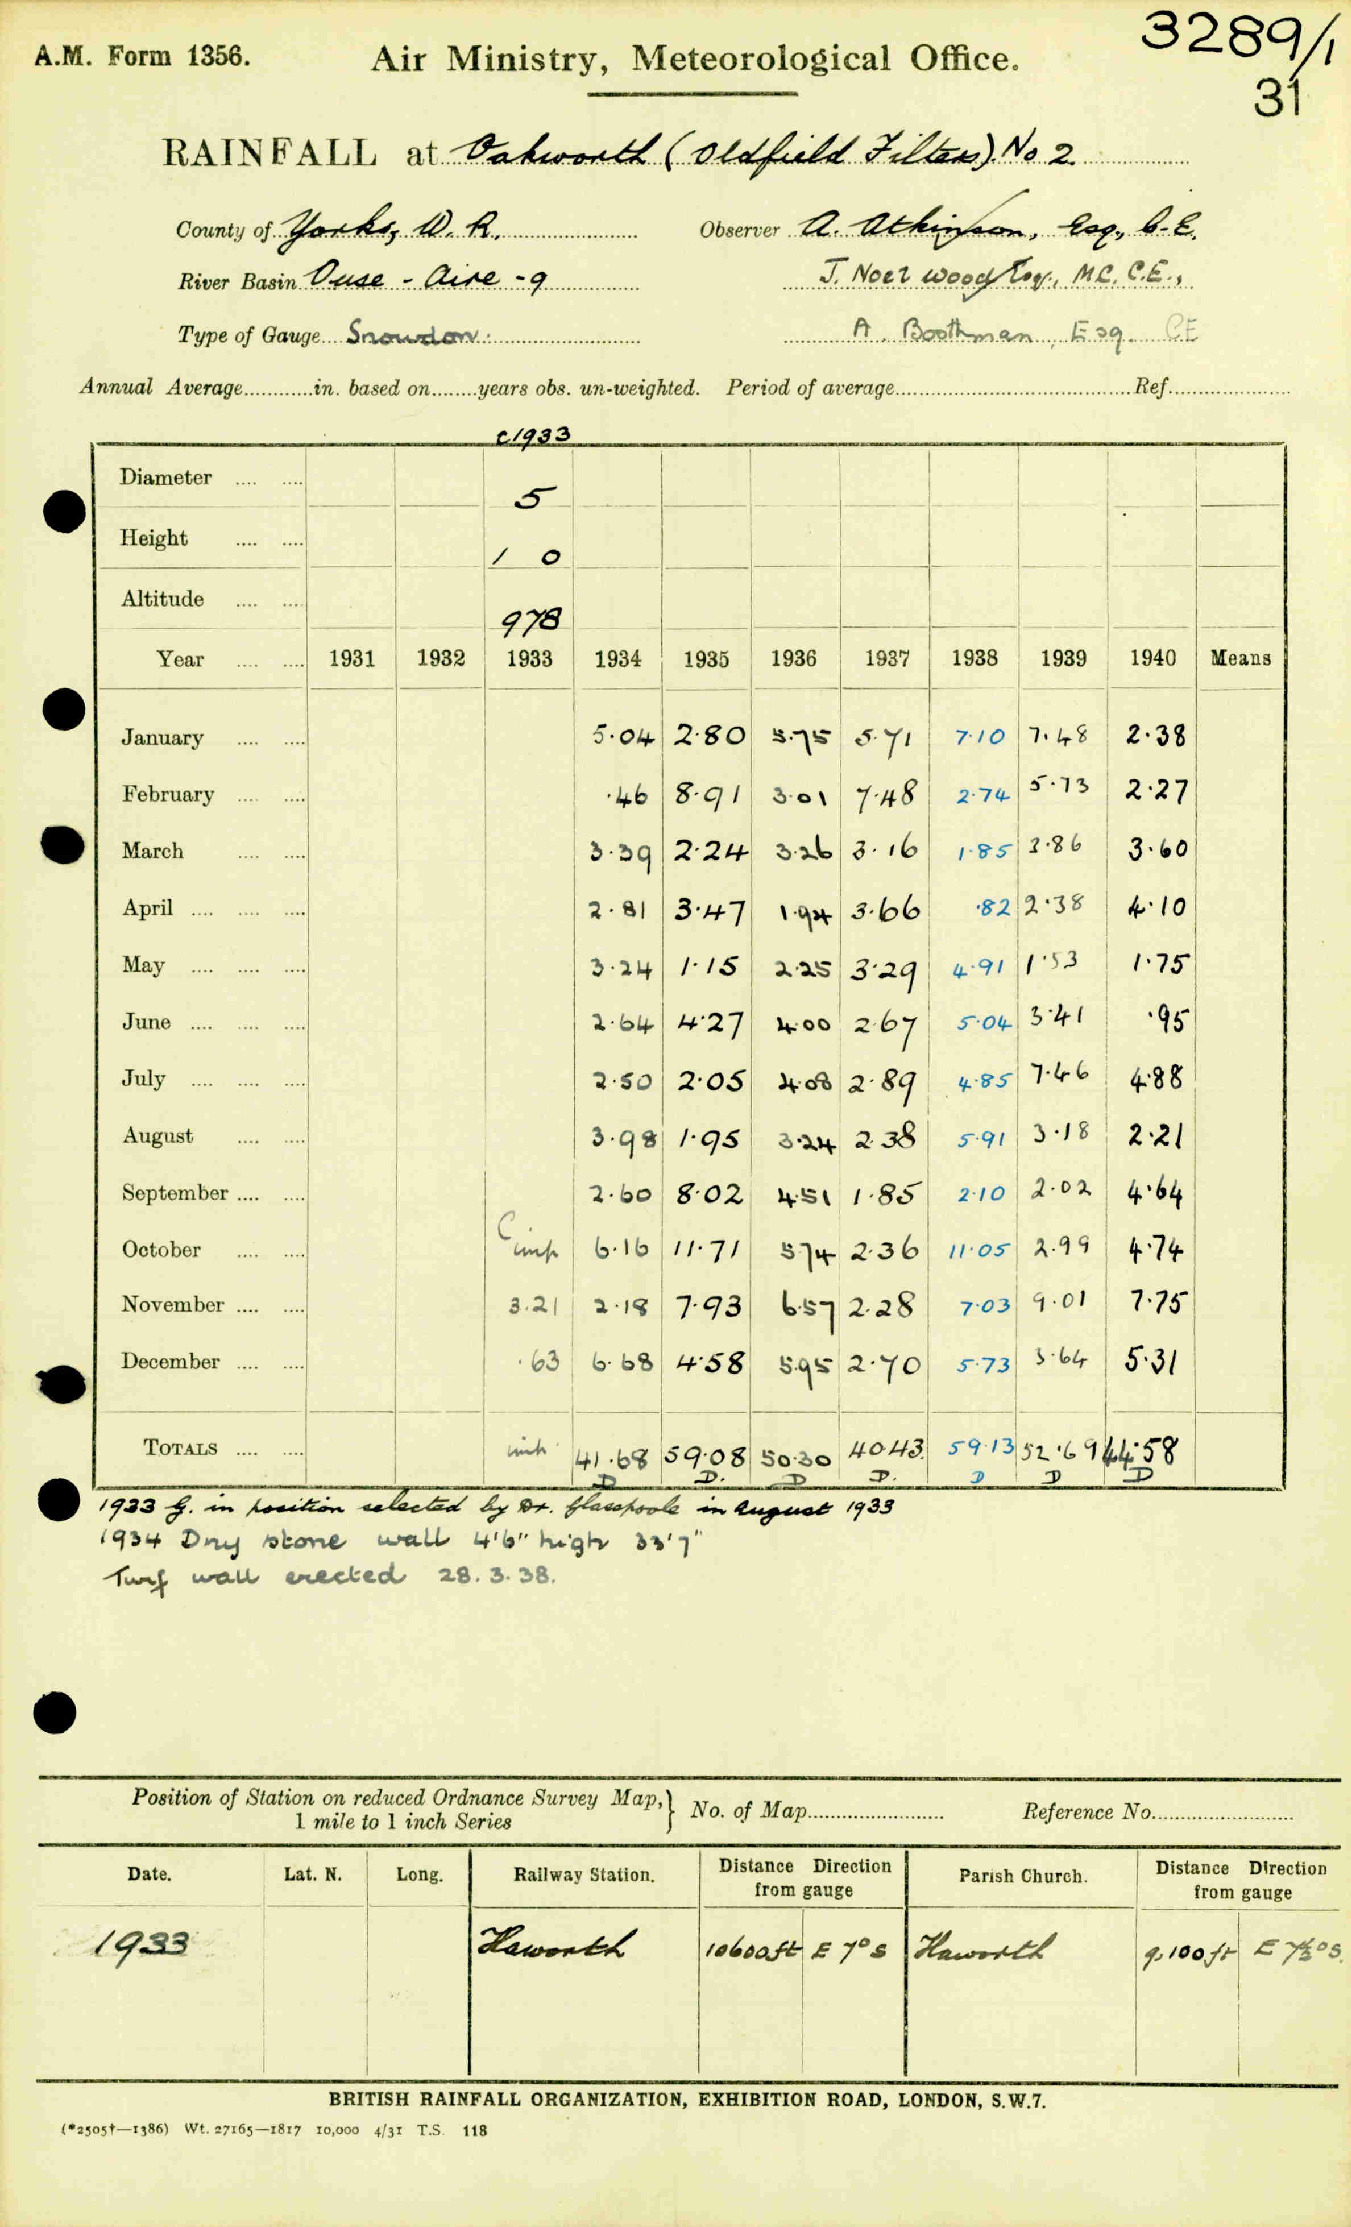 3289/1
31
A.M. Form 1356.
Air Ministry, Meteorological Office.
RAINFALL at Oakworth (Oldfield Filters) No 2
County of Yorks, W. R. Observer A. Atkinson, Esq., C.E.
River Basin Ouse - Aire - 9 J. Noel Wood Esq., M.C. C.E.,
Type of Gauge Snowdon. A. Boothman, Esq. CE
Annual Average............in. based on........years obs. un-weighted. Period of average........................................Ref.....................
c1933
Diameter .... .... 5
Height .... .... 1 0
Altitude .... .... 978
Year .... .... 1931 1932 1933 1934 1935 1936 1937 1938 1939 1940 Means
January .... .... 5.04 2.80 5.75 5.71 7.10 7.48 2.38
February .... .... .46 8.91 3.01 7.48 2.74 5.73 2.27
March .... .... 3.39 2.24 3.26 3.16 1.85 3.86 3.60
April .... .... .... 2.81 3.47 1.94 3.66 .82 2.38 4.10
May .... .... .... 3.24 1.15 2.25 3.29 4.91 1.53 1.75
June .... .... .... 2.64 4.27 4.00 2.67 5.04 3.41 .95
July .... .... .... 2.50 2.05 4.08 2.89 4.85 7.46 4.88
August .... .... 3.98 1.95 3.24 2.38 5.91 3.18 2.21
September .... .... 2.60 8.02 4.51 1.85 2.10 2.02 4.64
October .... .... imp 6.16 11.71 5.74 2.36 11.05 2.99 4.74
November .... .... 3.21 2.18 7.93 6.57 2.28 7.03 9.01 7.75
December .... .... .63 6.68 4.58 5.95 2.70 5.73 3.64 5.31
TOTALS .... .... imp 41.68 59.08 50.30 40.43 59.13 52.69 44.58
D D. D D. D D D
1933 G. in position selected by Dr. Glasspoole in August 1933
1934 Dry stone wall 4'6" high 33'7"
Turf wall erected 28.3.38.
Position of Station on reduced Ordnance Survey Map, 1 mile to 1 inch Series } No. of Map........................ Reference No.........................
Date. Lat. N. Long. Railway Station. Distance Direction from gauge Parish Church. Distance Direction from gauge
1933 Haworth 10600ft E 7° S Haworth 9,100ft E 7½° S.
BRITISH RAINFALL ORGANIZATION, EXHIBITION ROAD, LONDON, S.W.7.
(*2505†—1386) Wt. 27165—1817 10,000 4/31 T.S. 118